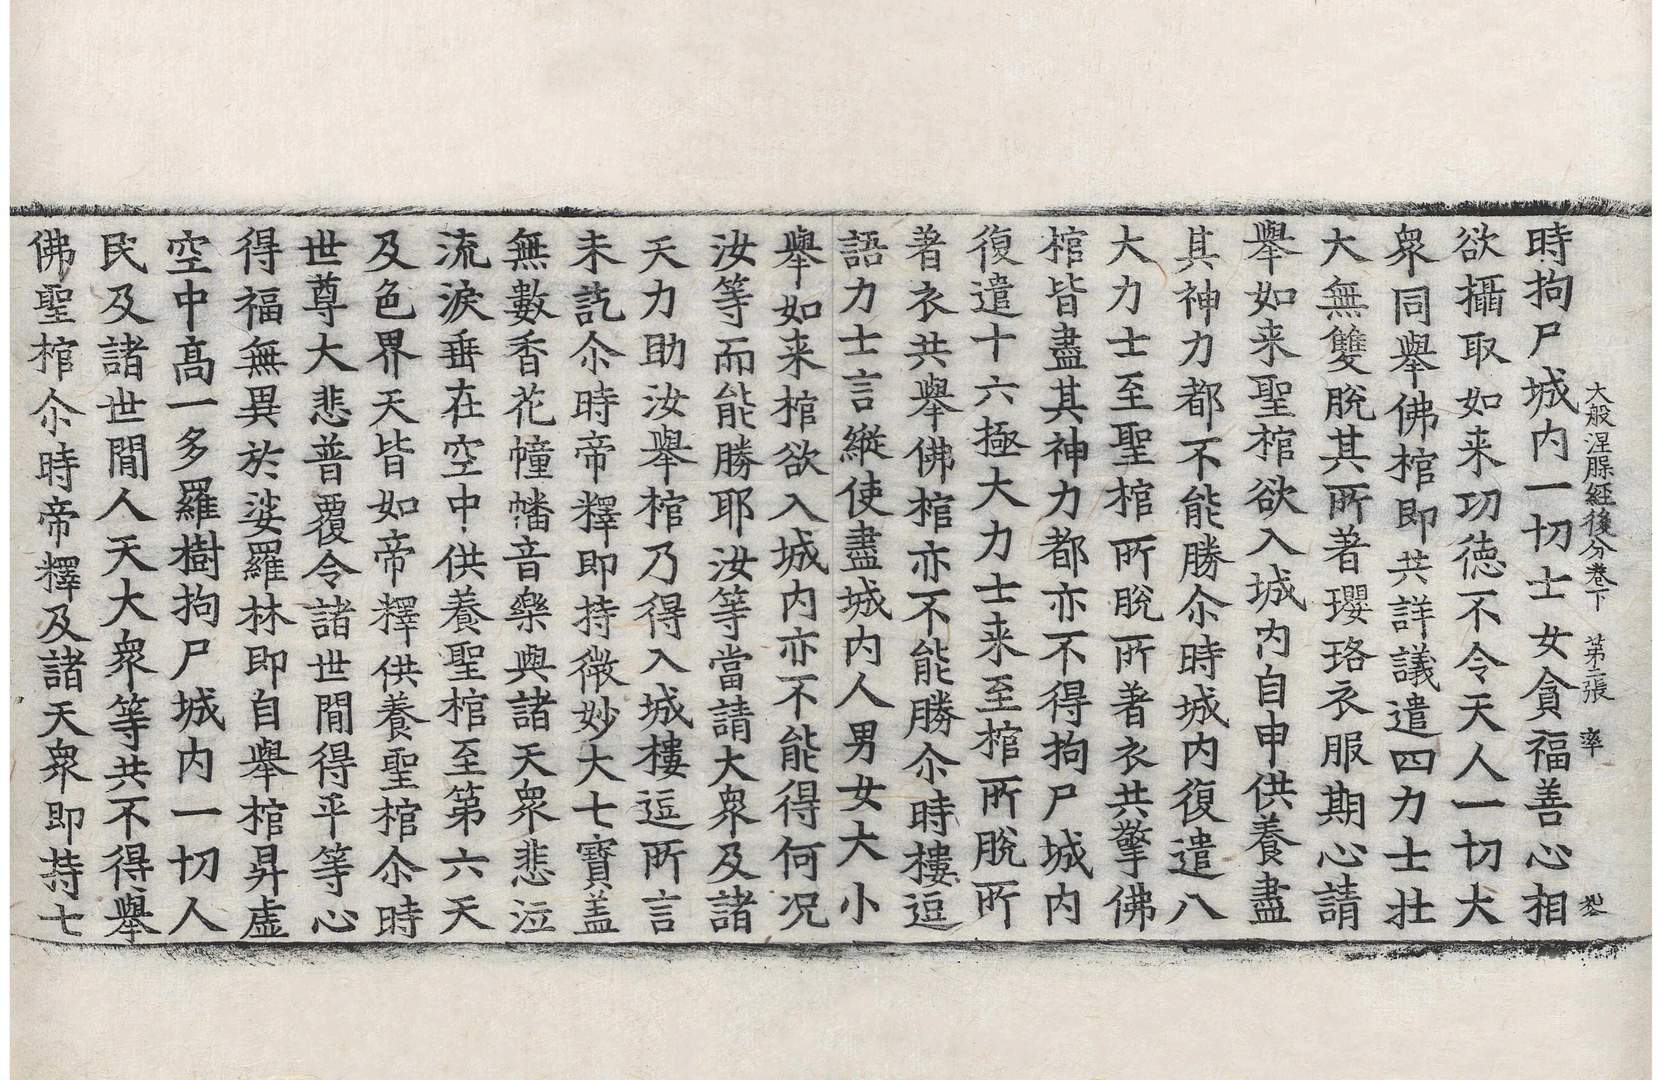 大般涅槃經後分卷下 第二張 率
時拘尸城内一切士女貪福善心相
欲攝取如来功德不令天人一切大
衆同舉佛棺即共詳議遣四力士壮
大無雙脫其所著瓔珞衣服期心請
舉如来聖棺欲入城内自申供養盡
其神力都不能勝尒時城内復遣八
大力士至聖棺所脫所著衣共擎佛
棺皆盡其神力都亦不得拘尸城内
復遣十六極大力士来至棺所脫所
著衣共舉佛棺亦不能勝尒時樓逗
語力士言縱使盡城内人男女大小
舉如来棺欲入城内亦不能得何况
汝等而能勝耶汝等當請大衆及諸
天力助汝舉棺乃得入城樓逗所言
未訖尒時帝釋即持微妙大七寶盖
無數香花幢幡音樂與諸天衆悲泣
流淚垂在空中供養聖棺至第六天
及色界天皆如帝釋供養聖棺尒時
世尊大悲普覆令諸世間得平等心
得福無異於娑羅林即自舉棺昇虛
空中高一多羅樹拘尸城内一切人
民及諸世間人天大衆等共不得舉
佛聖棺尒時帝釋及諸天衆即持七